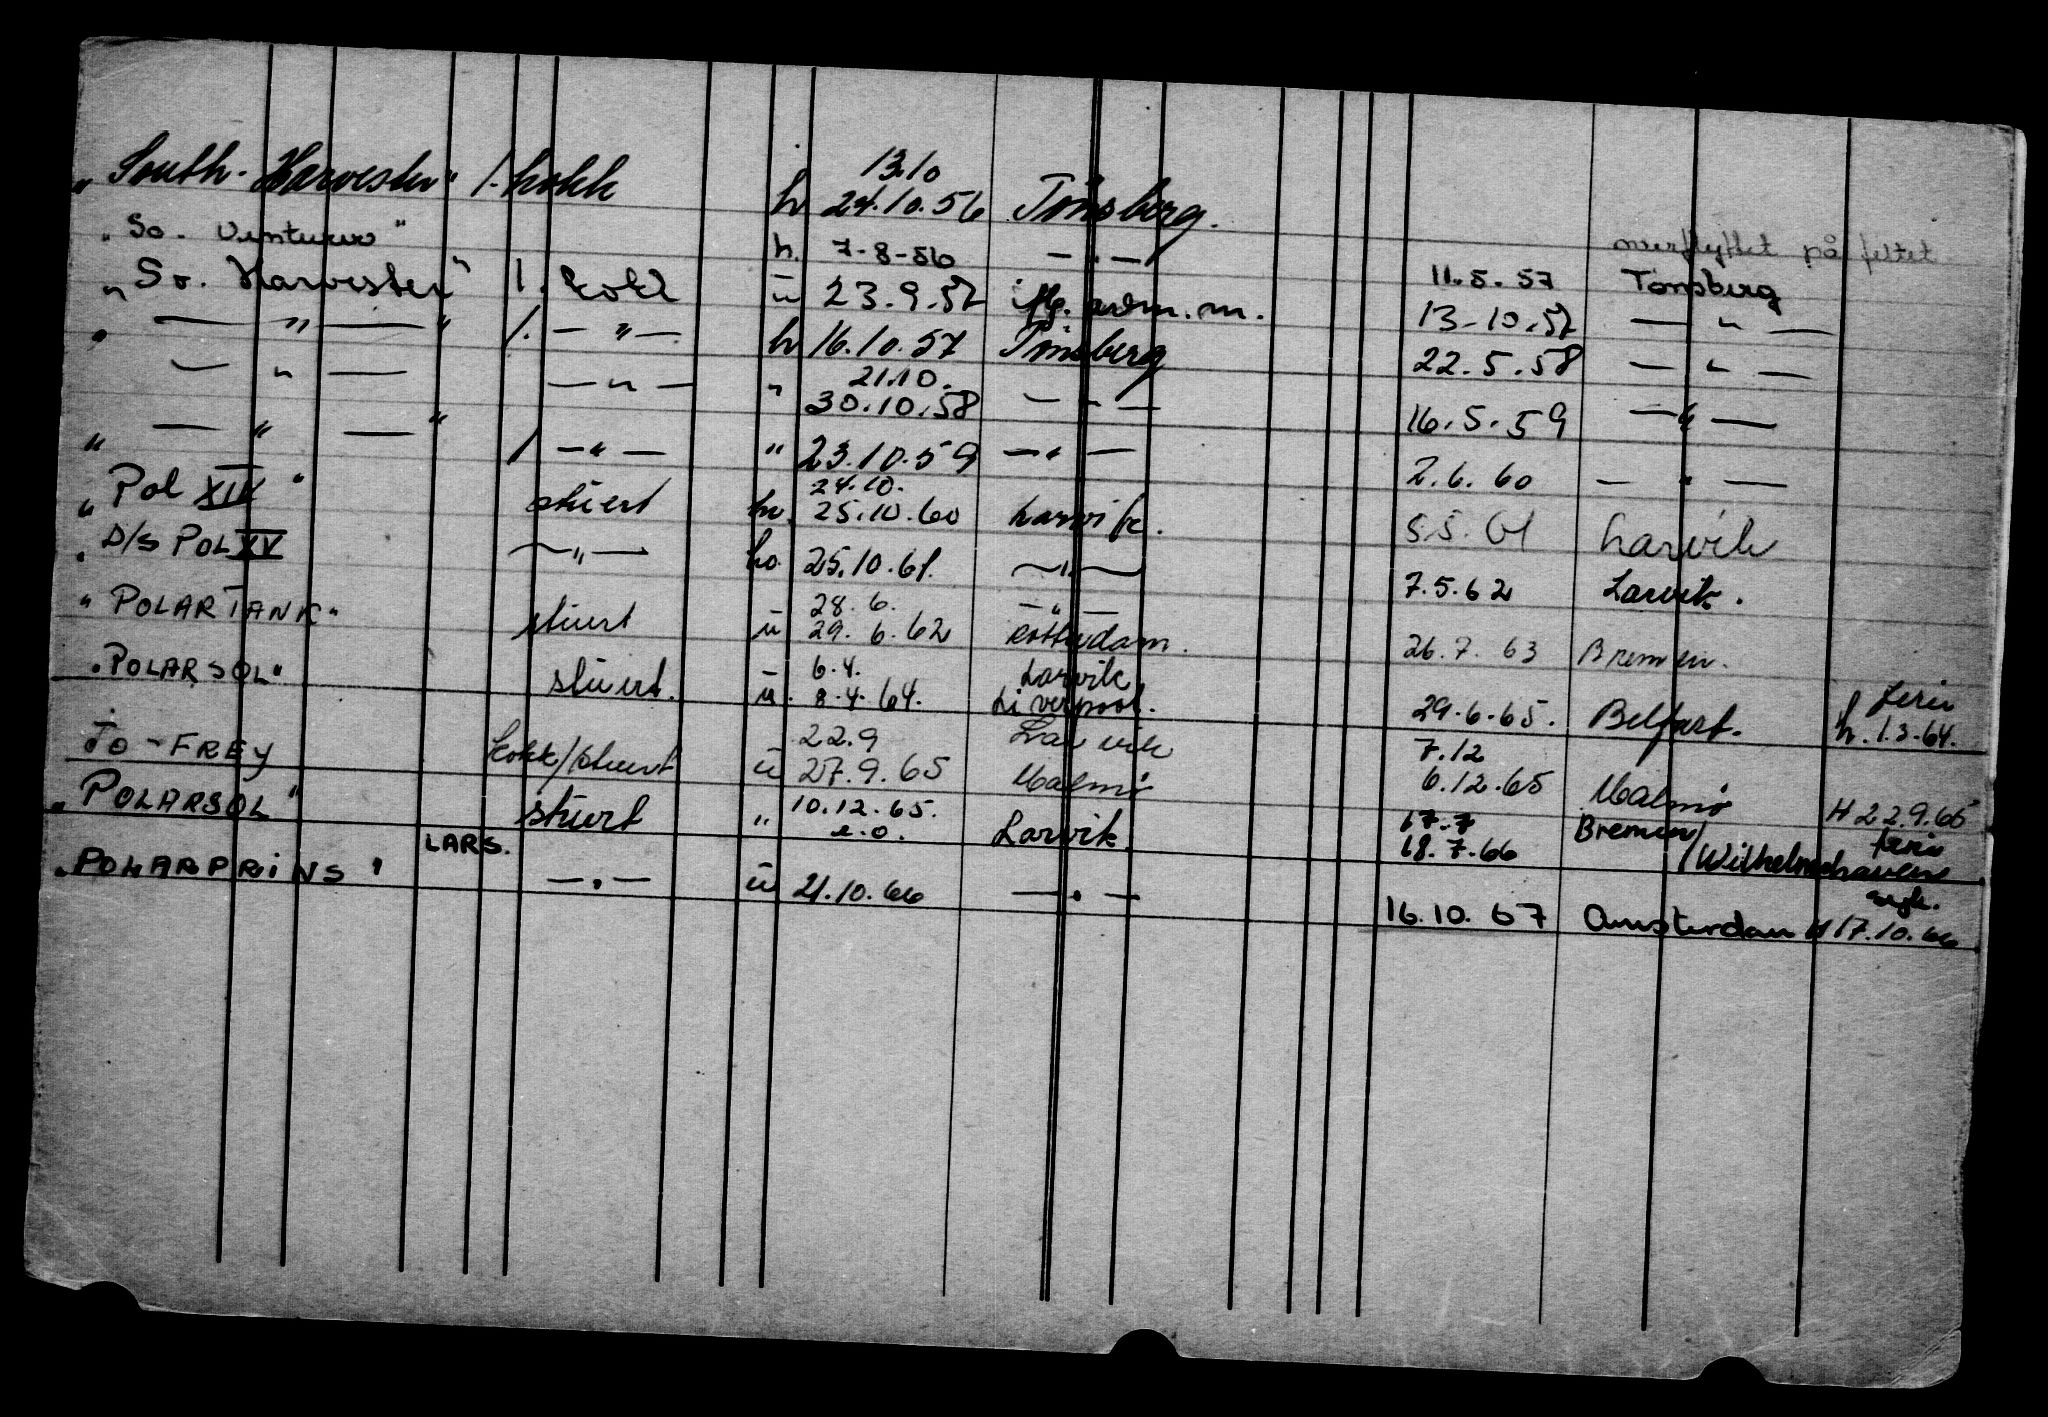 "South-Harvester" 1. kokk h 13.10 24.10.56 Tönsberg.
"So. Venturer" h. 7-8-56 — " — overflyttet på feltet
"So. Harvester" 1. kokk u 23.9.57 adm. m. 11.5.57 Tønsberg
" — " — " 1. — " — h 16.10.57 Tönsberg 13-10.57 — " —
— " — — " — " 21.10. 30.10.58 — " — 22.5.58 — " —
" — " — " 1 — " — " 23.10.59 — " — 16.5.59 — " —
2.6.60 — " —
"Pol XIV" stuert hv. 24.10. 25.10.60 Larvik. 5.5.61 Larvik
"D/S POL XV — " — ho. 25.10.61. — " — 7.5.62 Larvik.
"POLARTANK" stuert u 28.6. 29.6.62 — " — Rotterdam. 26.7.63 Bremen.
"POLARSOL" stuert. u. 6.4. 8.4.64. Larvik Liverpool. 29.6.65. Belfast. ferie h. 1.3.64.
JO-FREY kokk/stuert u 22.9 27.9.65 Larvik Malmö 7.12 6.12.65 Malmö H 22.9.65
"POLARSOL" stuert " 10.12.65. e.o. Larvik 17.7 18.7.66 Bremen/Wilhelmshaven ferie
"POLARPRINS" LARS. — " — u 21.10.66 — " — 16.10.67 Amsterdam H 17.10.66